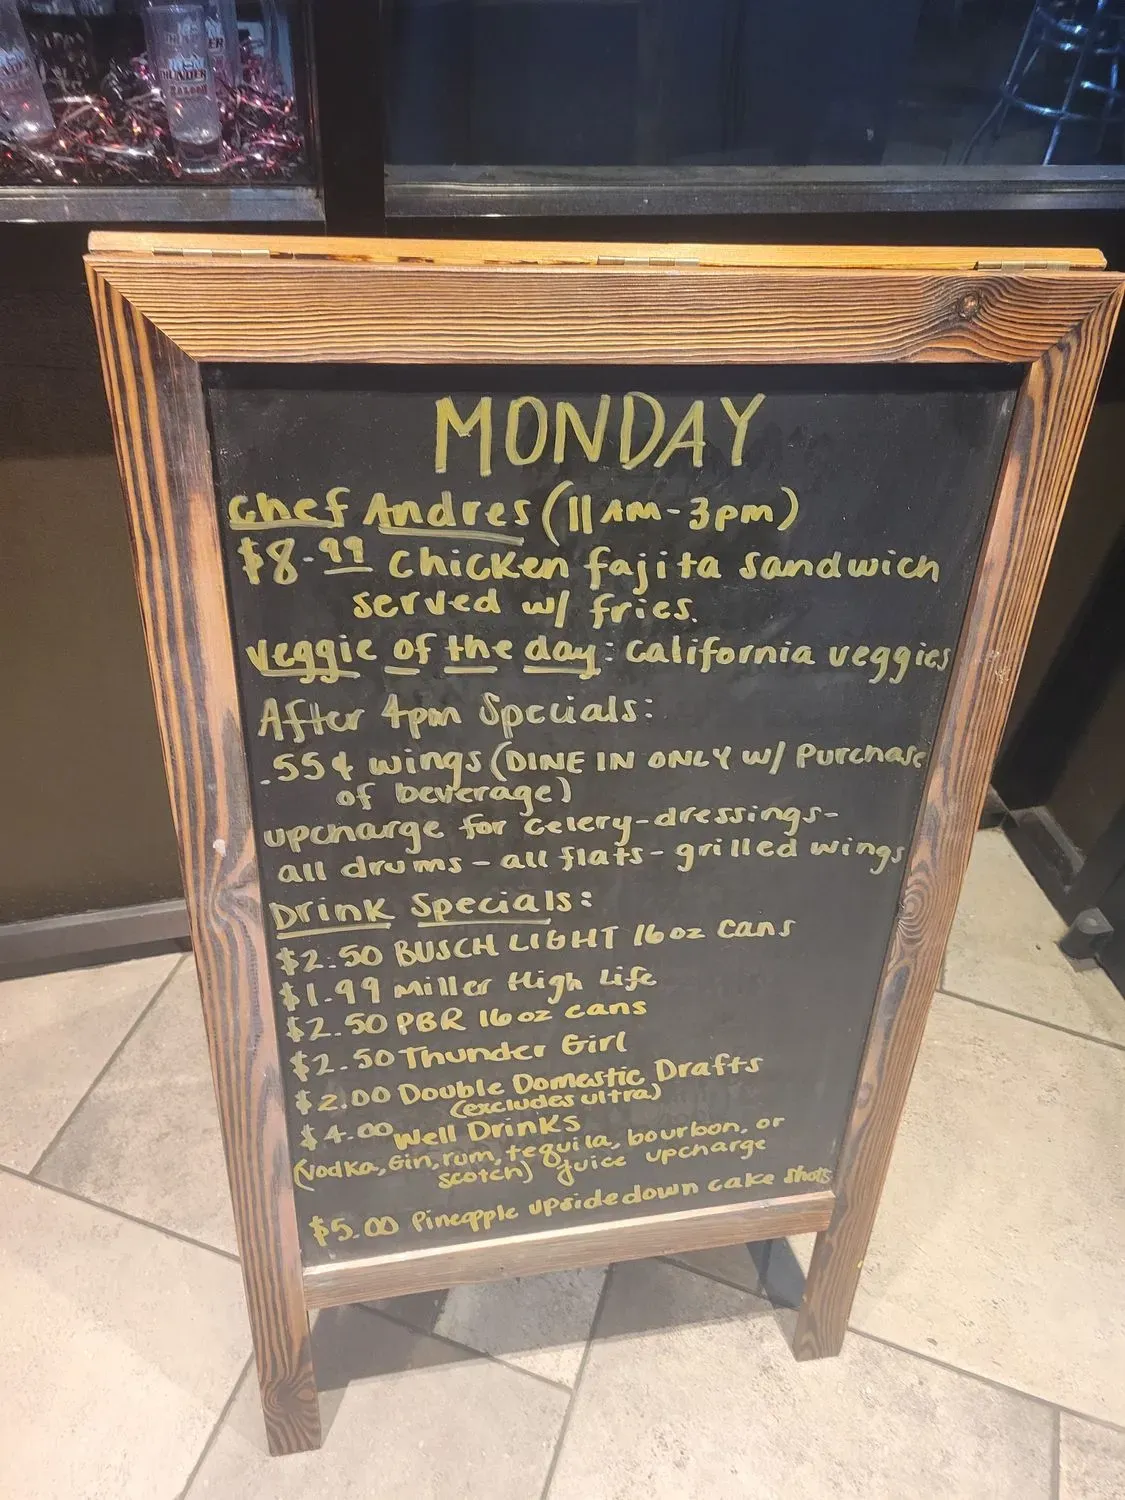 THUNDER
SALOON
MONDAY
Chef Andres (11AM-3pm)
$8.99 Chicken fajita sandwich
served w/ fries.
veggie of the day: California veggies
After 4pm Specials:
.55¢ wings (DINE IN ONLY w/ Purchase
of beverage)
upcharge for celery-dressings-
all drums - all flats - grilled wings
Drink Specials:
$2.50 BUSCH LIGHT 16oz cans
$1.99 Miller High Life
$2.50 PBR 16oz cans
$2.50 Thunder Girl
$2.00 Double Domestic Drafts
(excludes ultra)
$4.00 Well Drinks
(Vodka, Gin, rum, tequila, bourbon, or
scotch) juice upcharge
$5.00 Pineapple upside down cake shots